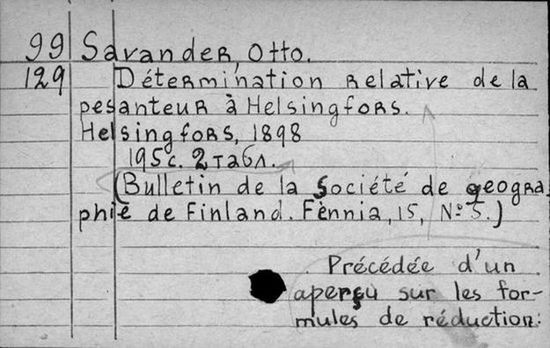 99 Savander, Otto.
129 Détermination relative de la
pesanteur à Helsingfors.
Helsingfors, 1898
195 с. 2 табл.
(Bulletin de la Société de geogra
phie de Finland. Fennia, 15, № 5.)
Précédée d'un
aperçu sur les for-
mules de réduction.